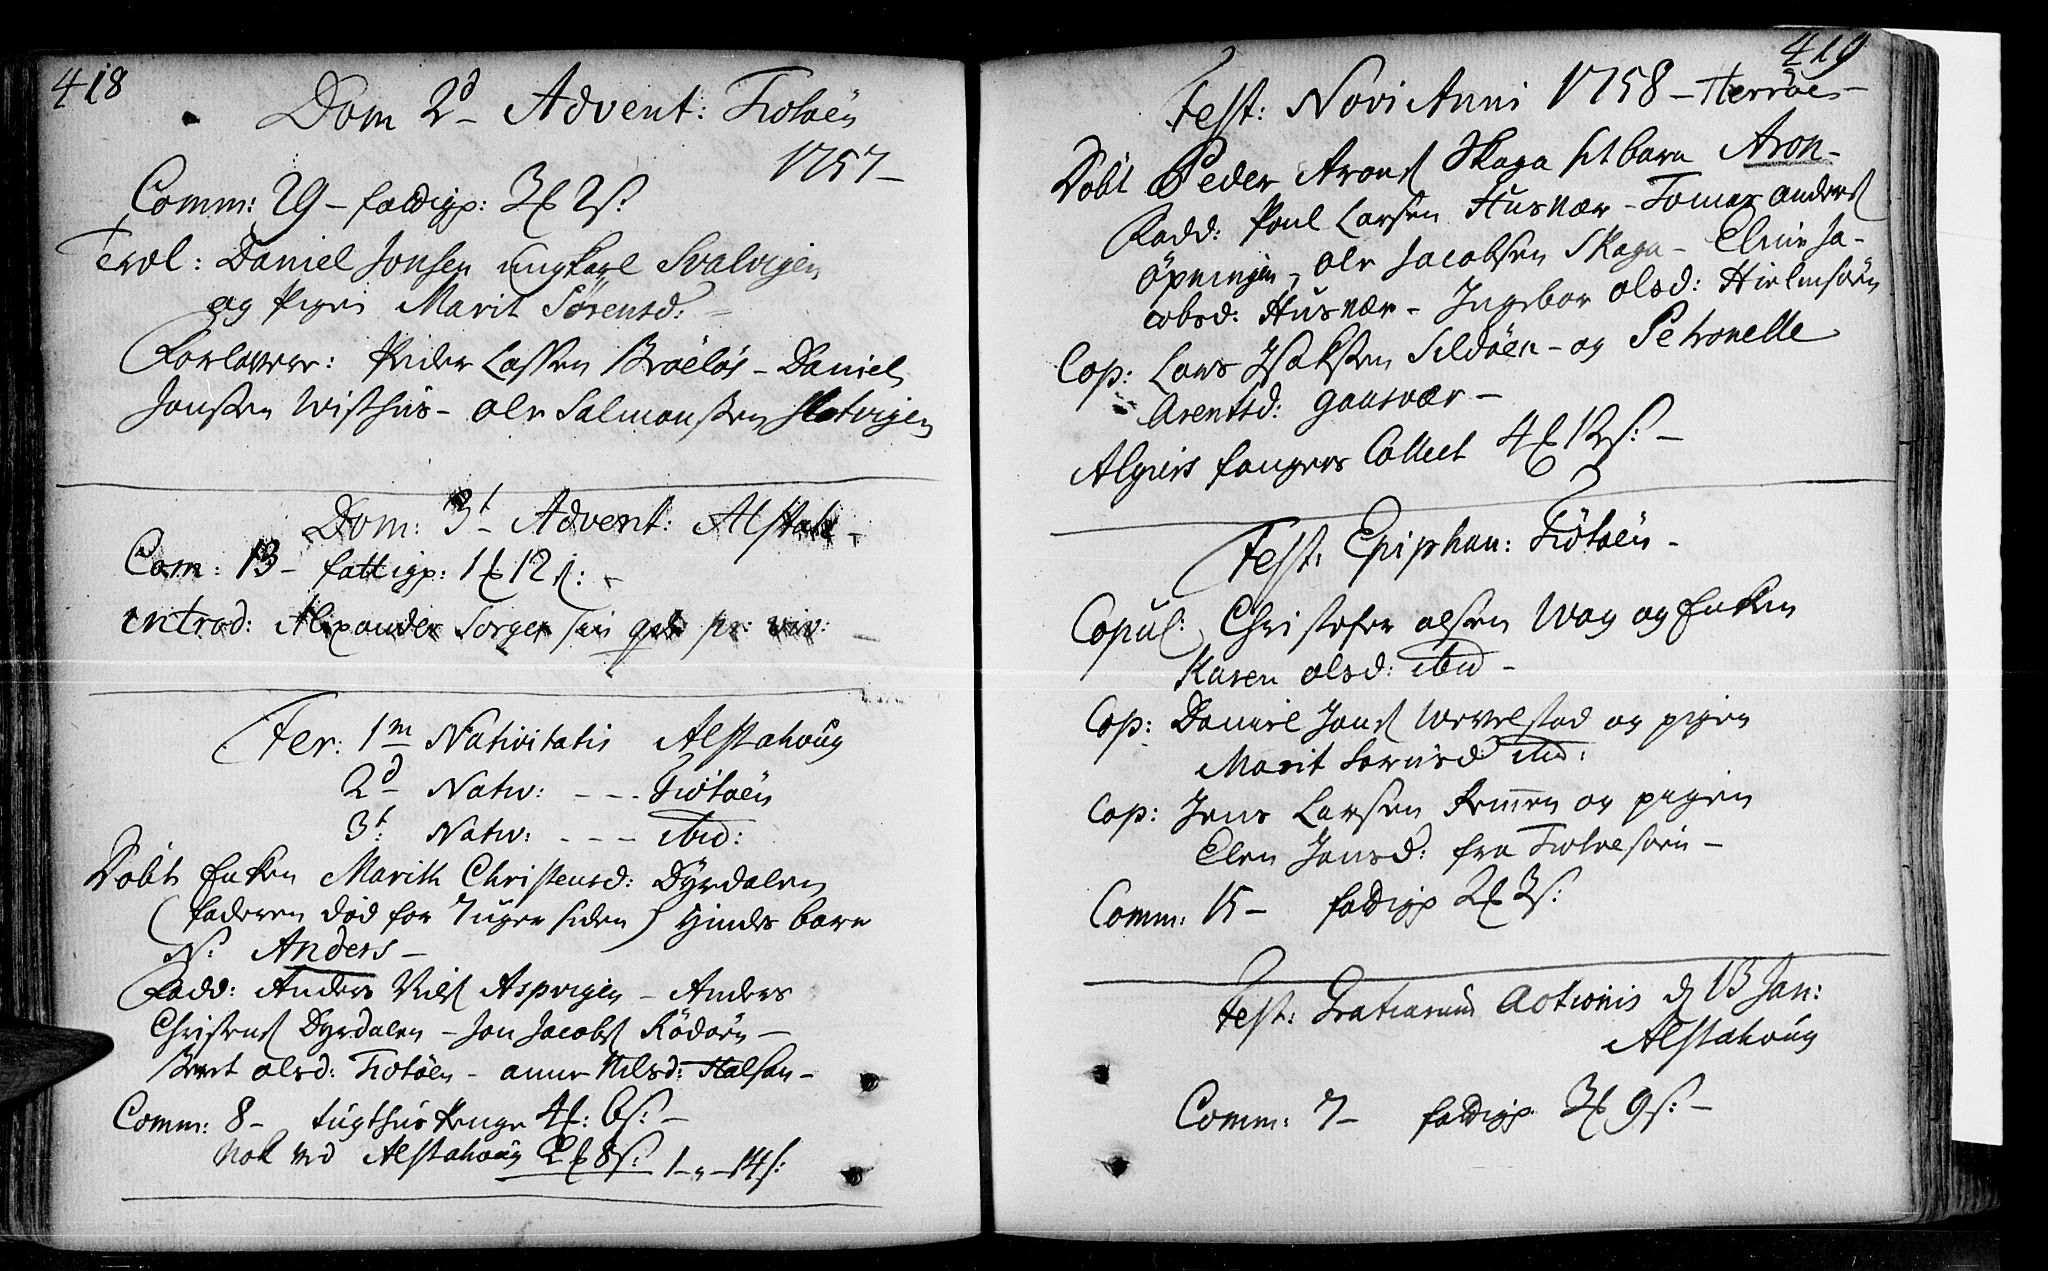 418
Dom 2d Advent: Tiøtøen
1757
Comm: 29 – fattigp: 3 ₥ 2 s:
Trol: Daniel Jonsen ungkarl Svalvigen
og Pigen Marit Sørensd:
Forlovere: Peder Lassen Bröeløs – Daniel
Jonssen Wisthus – Ole Salmonssen Slotvigen
Dom: 3t Advent: Alstah
Com: 13 – fattigp: 1 ₥ 12 s:
introd: Alexander Borger sin pr: viv:
Fer: 1m Nativitatis Alstahoug
2d Nativ: - - - Tiøtøen
3t: Nativ: - - - ibid:
Døbt Enken Marith Christensd: Dyrdalen
(faderen død for 7 uger siden) hindes barn
N: Anders –
Fadd: Anders Nils: Aspvigen – Anders
Christens: Dyrdalen – Jon Jacobs: Rødøen –
Berit olsd: Tiøtøen – anne Nilsd: Halsan –
Comm: 8 – tugthus Penge 4 ₥: 6 s: –
Nok ved Alstahoug 2 ₥ 8 s: 1 – „ – 14 s:
419
Fest: Novi Anni 1758 – Herrøe –
Døbt Peder Arons: Skaga sit barn Aron –
Fadd: Poul Larsen Husvær – Tomas anders:
Øpningen, ole Jacobsen Skaga – Eline Ja-
cobsd: Husvær – Ingebor olsd: Hielmsøen
Cop: Lars Isaksen Sildøen – og Petronelle
Arentsd: Gaasvær –
Algiers fangers Collect 4 ₥ 12 s: –
Fest: Epiphan: Tiøtøen –
Copul: Christofer olsen Wog og Enken
Karen olsd: ibid –
Cop: Daniel Jons: Wevelstad og pigen
Marit Sørnsd ibid:
Cop: Jens Larsen Remen og pigen
Elen Jonsd: fra Tiøtøen –
Comm: 15 – fattigp 2 ₥ 3 s:
Fest: Gratiarum Actionis d 13 Jan:
Alstahoug
Comm: 7 – fattigp. 3 ₥ 9 s: –